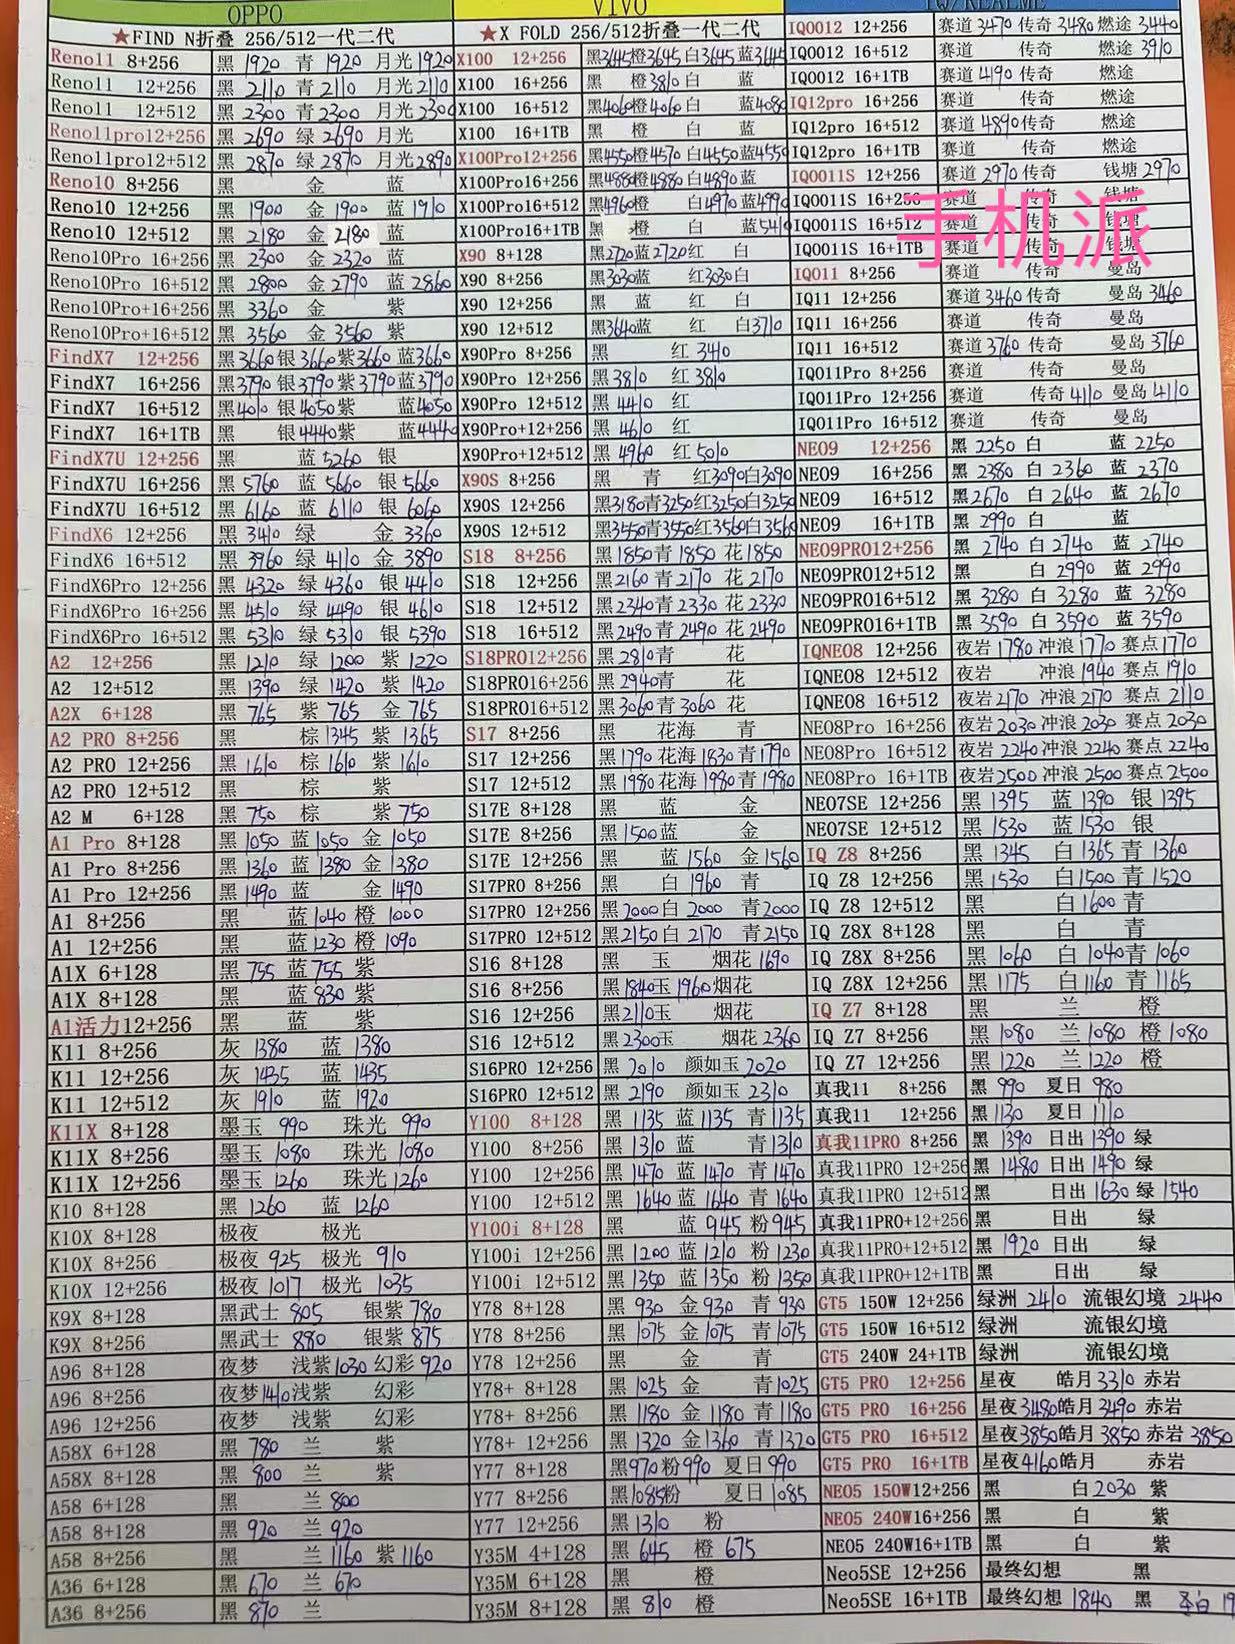 OPPO
VIVO
IQ/REALME
★FIND N折叠 256/512一代二代
Reno11 8+256 黑 1920 青 1920 月光 1920
Reno11 12+256 黑 2110 青 2110 月光 2110
Reno11 12+512 黑 2300 青 2300 月光 2300
Reno11pro12+256 黑 2690 绿 2690 月光
Reno11pro12+512 黑 2870 绿 2870 月光 2890
Reno10 8+256 黑 金 蓝
Reno10 12+256 黑 1900 金 1900 蓝 1910
Reno10 12+512 黑 2180 金 2180 蓝
Reno10Pro 16+256 黑 2300 金 2320 蓝
Reno10Pro 16+512 黑 2800 金 2790 蓝 2860
Reno10Pro+16+256 黑 3360 金 紫
Reno10Pro+16+512 黑 3560 金 3560 紫
FindX7 12+256 黑 3660 银 3660 紫 3660 蓝 3660
FindX7 16+256 黑 3790 银 3790 紫 3790 蓝 3790
FindX7 16+512 黑 4010 银 4050 紫 蓝 4050
FindX7 16+1TB 黑 银 4440 紫 蓝 4440
FindX7U 12+256 黑 蓝 5260 银
FindX7U 16+256 黑 5760 蓝 5660 银 5660
FindX7U 16+512 黑 6160 蓝 6110 银 6060
FindX6 12+256 黑 3410 绿 金 3360
FindX6 16+512 黑 3960 绿 4110 金 3890
FindX6Pro 12+256 黑 4320 绿 4360 银 4410
FindX6Pro 16+256 黑 4510 绿 4490 银 4610
FindX6Pro 16+512 黑 5310 绿 5310 银 5390
A2 12+256 黑 1210 绿 1200 紫 1220
A2 12+512 黑 1390 绿 1420 紫 1420
A2X 6+128 黑 765 紫 765 金 765
A2 PRO 8+256 黑 棕 1345 紫 1365
A2 PRO 12+256 黑 1610 棕 1610 紫 1610
A2 PRO 12+512 黑 棕 紫
A2 M 6+128 黑 750 棕 紫 750
A1 Pro 8+128 黑 1050 蓝 1050 金 1050
A1 Pro 8+256 黑 1360 蓝 1380 金 1380
A1 Pro 12+256 黑 1490 蓝 金 1490
A1 8+256 黑 蓝 1040 橙 1000
A1 12+256 黑 蓝 1230 橙 1090
A1X 6+128 黑 755 蓝 755 紫
A1X 8+128 黑 蓝 830 紫
A1活力12+256 黑 蓝 紫
K11 8+256 灰 1380 蓝 1380
K11 12+256 灰 1435 蓝 1435
K11 12+512 灰 1910 蓝 1920
K11X 8+128 墨玉 990 珠光 990
K11X 8+256 墨玉 1080 珠光 1080
K11X 12+256 墨玉 1260 珠光 1260
K10 8+128 黑 1260 蓝 1260
K10X 8+128 极夜 极光
K10X 8+256 极夜 925 极光 910
K10X 12+256 极夜 1017 极光 1035
K9X 8+128 黑武士 805 银紫 780
K9X 8+256 黑武士 880 银紫 875
A96 8+128 夜梦 浅紫 1030 幻彩 920
A96 8+256 夜梦 1410 浅紫 幻彩
A96 12+256 夜梦 浅紫 幻彩
A58X 6+128 黑 780 兰 紫
A58X 8+128 黑 800 兰 紫
A58 6+128 黑 兰 800
A58 8+128 黑 920 兰 920
A58 8+256 黑 兰 1160 紫 1160
A36 6+128 黑 670 兰 670
A36 8+256 黑 870 兰
★X FOLD 256/512折叠一代二代
X100 12+256 黑 3645 橙 3645 白 3645 蓝 3645
X100 16+256 黑 橙 3810 白 蓝
X100 16+512 黑 4060 橙 4060 白 蓝 4080
X100 16+1TB 黑 橙 白 蓝
X100Pro12+256 黑 4550 橙 4570 白 4550 蓝 4550
X100Pro16+256 黑 4880 橙 4880 白 4890 蓝
X100Pro16+512 黑 4960 橙 白 4970 蓝 4990
X100Pro16+1TB 黑 橙 白 蓝 5410
X90 8+128 黑 2720 蓝 2720 红 白
X90 8+256 黑 3030 蓝 红 3030 白
X90 12+256 黑 蓝 红 白
X90 12+512 黑 3640 蓝 红 白 3710
X90Pro 8+256 黑 红 3410
X90Pro 12+256 黑 3810 红 3810
X90Pro 12+512 黑 4410 红
X90Pro+12+256 黑 4610 红
X90Pro+12+512 黑 4960 红 5010
X90S 8+256 黑 青 红 3090 白 3090
X90S 12+256 黑 3180 青 3250 红 3250 白 3250
X90S 12+512 黑 3550 青 3550 红 3560 白 3560
S18 8+256 黑 1850 青 1850 花 1850
S18 12+256 黑 2160 青 2170 花 2170
S18 12+512 黑 2340 青 2330 花 2330
S18 16+512 黑 2490 青 2490 花 2490
S18PRO12+256 黑 2810 青 花
S18PRO16+256 黑 2940 青 花
S18PRO16+512 黑 3060 青 3060 花
S17 8+256 黑 花海 青
S17 12+256 黑 1790 花海 1830 青 1790
S17 12+512 黑 1980 花海 1980 青 1980
S17E 8+128 黑 蓝 金
S17E 8+256 黑 1500 蓝 金
S17E 12+256 黑 蓝 1560 金 1560
S17PRO 8+256 黑 白 1960 青
S17PRO 12+256 黑 2000 白 2000 青 2000
S17PRO 12+512 黑 2150 白 2170 青 2150
S16 8+128 黑 玉 烟花 1690
S16 8+256 黑 1840 玉 1960 烟花
S16 12+256 黑 2110 玉 烟花
S16 12+512 黑 2300 玉 烟花 2360
S16PRO 12+256 黑 2010 颜如玉 2020
S16PRO 12+512 黑 2190 颜如玉 2310
Y100 8+128 黑 1135 蓝 1135 青 1135
Y100 8+256 黑 1310 蓝 青 1310
Y100 12+256 黑 1470 蓝 1470 青 1470
Y100 12+512 黑 1640 蓝 1640 青 1640
Y100i 8+128 黑 蓝 945 粉 945
Y100i 12+256 黑 1200 蓝 1210 粉 1230
Y100i 12+512 黑 1350 蓝 1350 粉 1350
Y78 8+128 黑 930 金 930 青 930
Y78 8+256 黑 1075 金 1075 青 1075
Y78 12+256 黑 金 青
Y78+ 8+128 黑 1025 金 青 1025
Y78+ 8+256 黑 1180 金 1180 青 1180
Y78+ 12+256 黑 1320 金 1360 青 1320
Y77 8+128 黑 970 粉 990 夏日 990
Y77 8+256 黑 1085 粉 夏日 1085
Y77 12+256 黑 1310 粉
Y35M 4+128 黑 645 橙 675
Y35M 6+128 黑 橙
Y35M 8+128 黑 810 橙
IQ0012 12+256 赛道 3470 传奇 3480 燃途 3440
IQ0012 16+512 赛道 传奇 3910
IQ0012 16+1TB 赛道 4190 传奇 燃途
IQ12pro 16+256 赛道 传奇 燃途
IQ12pro 16+512 赛道 4890 传奇 燃途
IQ12pro 16+1TB 赛道 传奇 燃途
IQ0011S 12+256 赛道 2970 传奇 钱塘 2970
IQ0011S 16+256 赛道 传奇 钱塘
IQ0011S 16+512 赛道 传奇 钱塘
IQ0011S 16+1TB 赛道 传奇 钱塘
手机派
IQ011 8+256 赛道 传奇 曼岛
IQ11 12+256 赛道 3460 传奇 曼岛 3460
IQ11 16+256 赛道 传奇 曼岛
IQ11 16+512 赛道 3760 传奇 曼岛 3760
IQ011Pro 8+256 赛道 传奇 曼岛
IQ011Pro 12+256 赛道 传奇 4110 曼岛 4110
IQ011Pro 16+512 赛道 传奇 曼岛
NEO9 12+256 黑 2250 白 蓝 2250
NEO9 16+256 黑 2380 白 2360 蓝 2370
NEO9 16+512 黑 2670 白 2640 蓝 2670
NEO9 16+1TB 黑 2990 白 蓝
NEO9PRO12+256 黑 2740 白 2740 蓝 2740
NEO9PRO12+512 黑 白 2990 蓝 2990
NEO9PRO16+512 黑 3280 白 3280 蓝 3280
NEO9PRO16+1TB 黑 3590 白 3590 蓝 3590
IQNEO8 12+256 夜岩 1780 冲浪 1770 赛点 1770
IQNEO8 12+512 夜岩 冲浪 1940 赛点 1910
IQNEO8 16+512 夜岩 2170 冲浪 2170 赛点 2110
NEO8Pro 16+256 夜岩 2030 冲浪 2030 赛点 2030
NEO8Pro 16+512 夜岩 2240 冲浪 2240 赛点 2240
NEO8Pro 16+1TB 夜岩 2500 冲浪 2500 赛点 2500
NEO7SE 12+256 黑 1395 蓝 1390 银 1395
NEO7SE 12+512 黑 1530 蓝 1530 银
IQ Z8 8+256 黑 1345 白 1365 青 1360
IQ Z8 12+256 黑 1530 白 1500 青 1520
IQ Z8 12+512 黑 白 1600 青
IQ Z8X 8+128 黑 白 青
IQ Z8X 8+256 黑 1060 白 1040 青 1060
IQ Z8X 12+256 黑 1175 白 1160 青 1165
IQ Z7 8+128 黑 兰 橙
IQ Z7 8+256 黑 1080 兰 1080 橙 1080
IQ Z7 12+256 黑 1220 兰 1220 橙
真我11 8+256 黑 990 夏日 980
真我11 12+256 黑 1130 夏日 1110
真我11PRO 8+256 黑 1390 日出 1390 绿
真我11PRO 12+256 黑 1480 日出 1490 绿
真我11PRO 12+512 黑 日出 1630 绿 1540
真我11PRO+12+256 黑 日出 绿
真我11PRO+12+512 黑 1920 日出 绿
真我11PRO+12+1TB 黑 日出 绿
GT5 150W 12+256 绿洲 2410 流银幻境 2440
GT5 150W 16+512 绿洲 流银幻境
GT5 240W 24+1TB 绿洲 流银幻境
GT5 PRO 12+256 星夜 皓月 3310 赤岩
GT5 PRO 16+256 星夜 3480 皓月 3490 赤岩
GT5 PRO 16+512 星夜 3850 皓月 3850 赤岩 3850
GT5 PRO 16+1TB 星夜 4160 皓月 赤岩
NEO5 150W12+256 黑 白 2030 紫
NEO5 240W16+256 黑 白 紫
NEO5 240W16+1TB 黑 白 紫
Neo5SE 12+256 最终幻想 黑
Neo5SE 16+1TB 最终幻想 1840 黑 圣白